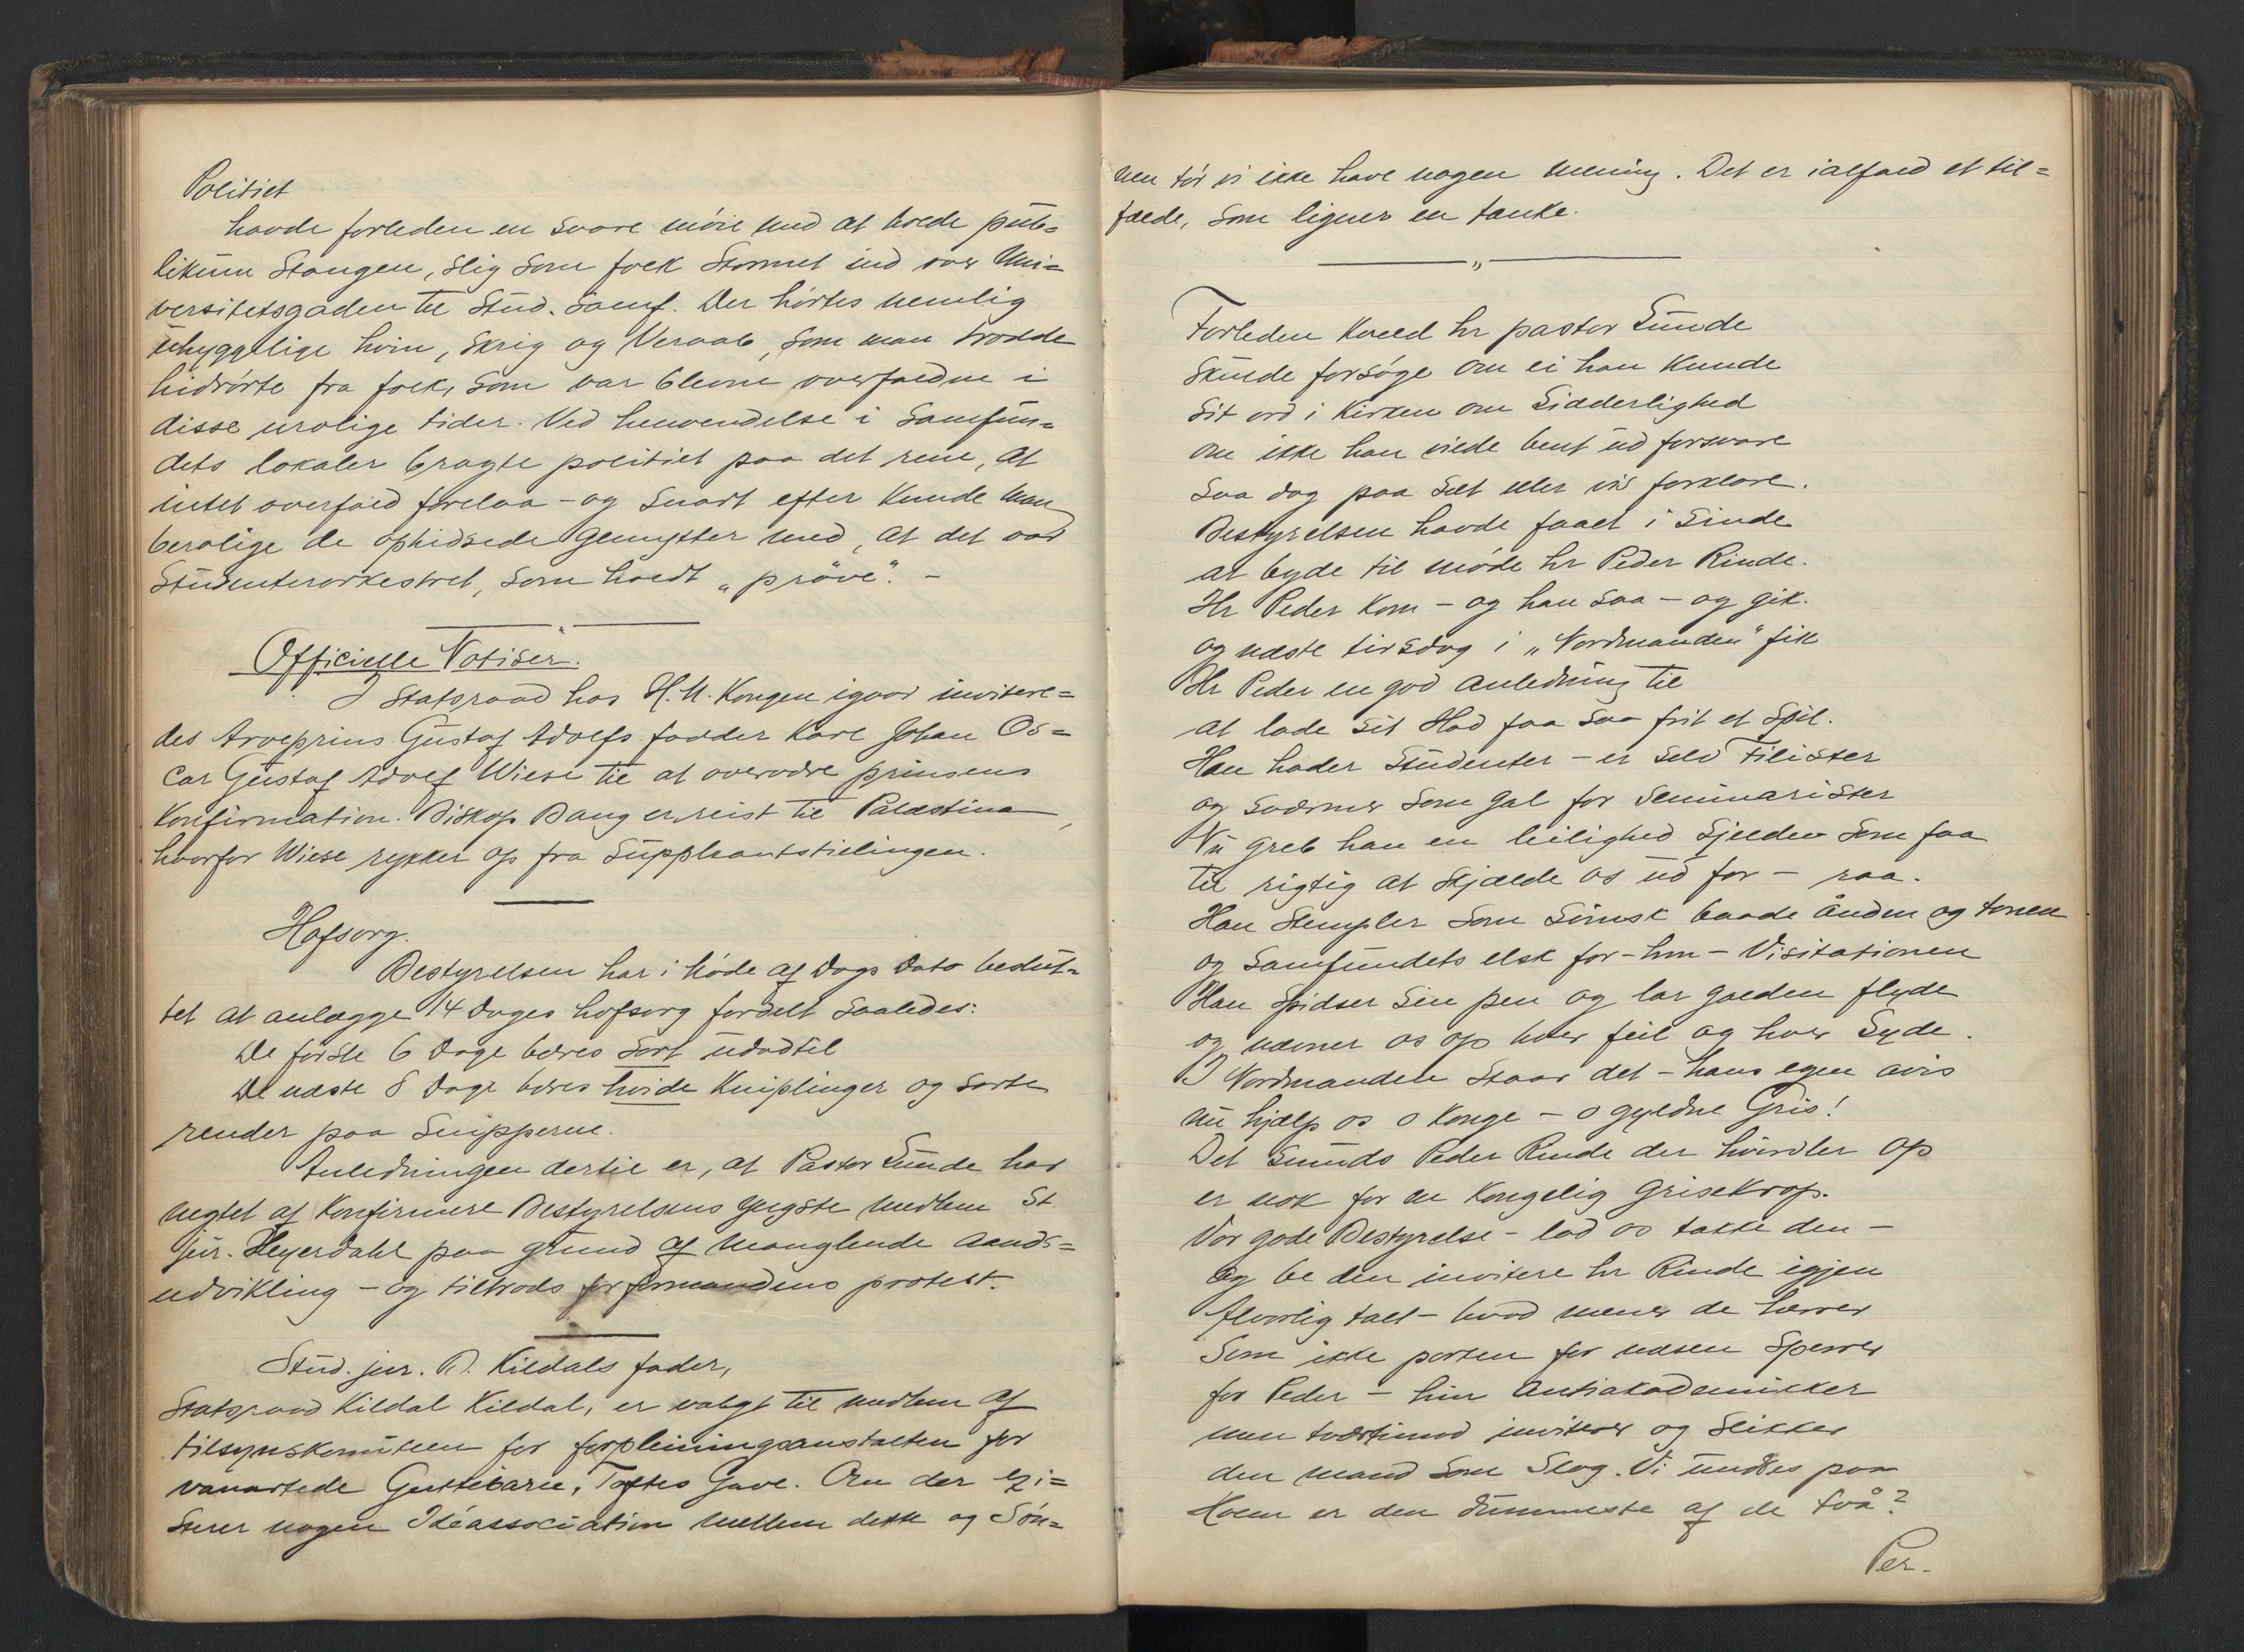 Politiet
havde forleden en svare møie med at holde pub=
likum Stangen, slig som folk stormet ind over Uni=
versitetsgaden til Stud. Samf. Der hørtes nemlig
uhyggelige hvin, skrig og Veraab, som man trodde
hidrørte fra folk, som var blevne overfaldne i
disse urolige tider. Ved henvendelse i Samfun=
dets lokaler bragte politiet paa det rene, at
intet overfald forelaa - og snart efter kunde man
berolige de ophidsede Gemytter med, at det var
Studenterorkestret, som holdt „prøve". -
Officielle Notiser.
I Statsraad hos H. M. Kongen igaar invitere=
des Arveprins Gustaf Adolfs fadder Karl Johan Os=
car Gustaf Adolf Wiese til at overvære prinsens
Konfirmation. Biskop Bang er reist til Palæstina,
hvorfor Wiese rykker op fra Suppleantstillingen.
Hofsorg.
Bestyrelsen har i Møde af Dags Dato beslut=
tet at anlægge 14 Dages hofsorg fordelt saaledes:
De første 6 Dage bæres sort udadtil
De næste 8 Dage bæres hvide Kniplinger og sorte
render paa Snipperne.
Anledningen dertil er, at Pastor Sunde har
negtet at konfirmere Bestyrelsens yngste medlem St.
jur. Heyerdahl paa grund af manglende Aands=
udvikling - og tiltrods for formandens protest.
Stud. jur. B. Kildals fader,
Statsraad Kildal Kildal, er valgt til medlem af
tilsynskomiteen for forpleiningsanstalten for
vanartede Guttebarn, Toftes Gave. Om der exi=
sterer nogen Idéassociation mellem dette og Søn=
nen tør vi ikke have nogen mening. Det er ialfald et til=
fælde, som ligner en tanke.
Forleden kveld hr pastor Sunde
skulde forsøge om ei han kunde
sit ord i Kirken om Sidderlighed
om ikke han vilde bent ud forsvare
saa dog paa Sæt eller vis forklare.
Bestyrelsen havde faaet i Sinde
at byde til møde hr Peder Rinde.
Hr Peder kom - og han saa - og gik.
og næste tirsdag i „Nordmanden" fik
Hr Peder en god anledning til
at lade sit Had faa saa frit et Spil.
Han hader Studenter - er selv Filister
og sværmer som gal for Seminarister
Nu greb han en leilighed sjelden som faa
til rigtig at skjælde os ud for - raa.
Han stempler som Simsk baade Ånden og tonen
og Samfundets elsk for - hm - Visitationen
Han spidser sin pen og lar galden flyde
og nævner os op hver feil og hver Lyde.
I Nordmanden staar det - hans egen avis
nu hjælp os o Konge - o gyldne Gris!
Det Smuds Peder Rinde der hvirvler op
er nok for en kongelig Grisekrop.
Vor gode Bestyrelse - lad os takke den -
og be den invitere hr Rinde igjen
Alvorlig talt - hvad mener de herrer
Som ikke porten for næsen sperrer
for Peder - hin Antiakademikker
men tværtimod inviterer og slikker
den mand som slog. Vi undres paa
Hvem er den dummeste af de två?
Per.